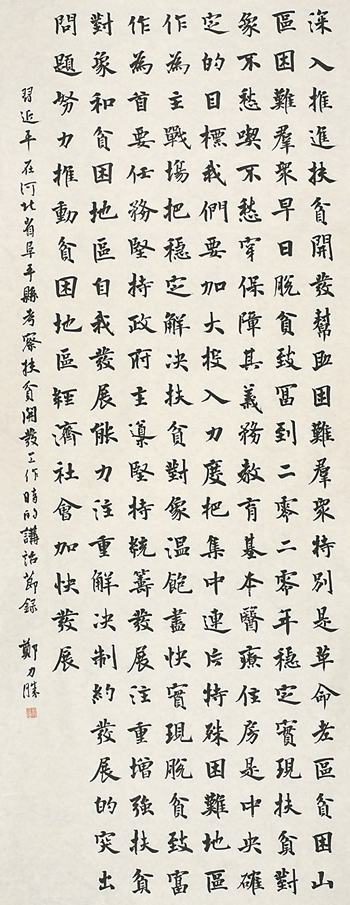 深入推進扶貧開發幫助困難羣衆特別是革命老區貧困山
區困難羣衆早日脫貧致富到二零二零年穩定實現扶貧對
象不愁喫不愁穿保障其義務教育基本醫療住房是中央確
定的目標我們要加大投入力度把集中連片特殊困難地區
作為主戰場把穩定解決扶貧對象温飽盡快實現脫貧致富
作為首要任務堅持政府主導堅持統籌發展注重增強扶貧
對象和貧困地區自我發展能力注重解決制約發展的突出
問題努力推動貧困地區經濟社會加快發展
習近平在河北省阜平縣考察扶貧開發工作時的講話節錄 鄭力勝